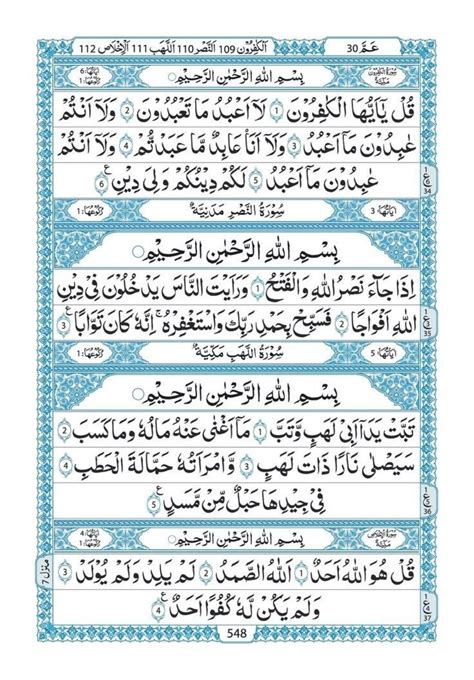 عَـمَّ 30 اَلْكٰفِرُوْن 109 اَلنَّصْر 110 اَللَّهَب 111 اَلْاِخْلَاص 112
سُوْرَةُ الْكٰفِرُوْنَ مَكِّيَّةٌ بِسْمِ اللّٰهِ الرَّحْمٰنِ الرَّحِيْمِ اٰيَاتُهَا: 6 رُكُوْعُهَا: 1
قُلْ يٰۤاَيُّهَا الْكٰفِرُوْنَ ۙ 1 لَاۤ اَعْبُدُ مَا تَعْبُدُوْنَ ۙ 2 وَلَاۤ اَنْتُمْ
عٰبِدُوْنَ مَاۤ اَعْبُدُ ۚ 3 وَلَاۤ اَنَا عَابِدٌ مَّا عَبَدْتُّمْ ۙ 4 وَلَاۤ اَنْتُمْ
عٰبِدُوْنَ مَاۤ اَعْبُدُ ؕ 5 لَكُمْ دِيْنُكُمْ وَلِىَ دِيْنِ 6
ع 1 6 34
اٰيَاتُهَا: 3 سُوْرَةُ النَّصْرِ مَدَنِيَّةٌ رُكُوْعُهَا: 1
بِسْمِ اللّٰهِ الرَّحْمٰنِ الرَّحِيْمِ
اِذَا جَآءَ نَصْرُ اللّٰهِ وَالْفَتْحُ ۙ 1 وَرَاَيْتَ النَّاسَ يَدْخُلُوْنَ فِىْ دِيْنِ
اللّٰهِ اَفْوَاجًا ۙ 2 فَسَبِّحْ بِحَمْدِ رَبِّكَ وَاسْتَغْفِرْهُ ؔؕ اِنَّهٗ كَانَ تَوَّابًا 3
35
اٰيَاتُهَا: 5 سُوْرَةُ اللَّهَبِ مَكِّيَّةٌ رُكُوْعُهَا: 1
بِسْمِ اللّٰهِ الرَّحْمٰنِ الرَّحِيْمِ
تَبَّتْ يَدَاۤ اَبِىْ لَهَبٍ وَّتَبَّ ؕ 1 مَاۤ اَغْنٰى عَنْهُ مَالُهٗ وَمَا كَسَبَ ؕ 2
سَيَصْلٰى نَارًا ذَاتَ لَهَبٍ ۚۖ 3 وَّامْرَاَتُهٗ ؕ حَمَّالَةَ الْحَطَبِ ۚ 4
فِىْ جِيْدِهَا حَبْلٌ مِّنْ مَّسَدٍ 5
36
سُوْرَةُ الْاِخْلَاصِ مَكِّيَّةٌ بِسْمِ اللّٰهِ الرَّحْمٰنِ الرَّحِيْمِ اٰيَاتُهَا: 4 رُكُوْعُهَا: 1
قُلْ هُوَ اللّٰهُ اَحَدٌ ۚ 1 اَللّٰهُ الصَّمَدُ ۚ 2 لَمْ يَلِدْ ۙ وَلَمْ يُوْلَدْ ۙ 3
وَلَمْ يَكُنْ لَّهٗ كُفُوًا اَحَدٌ 4
37
مَنْزِل 7
548